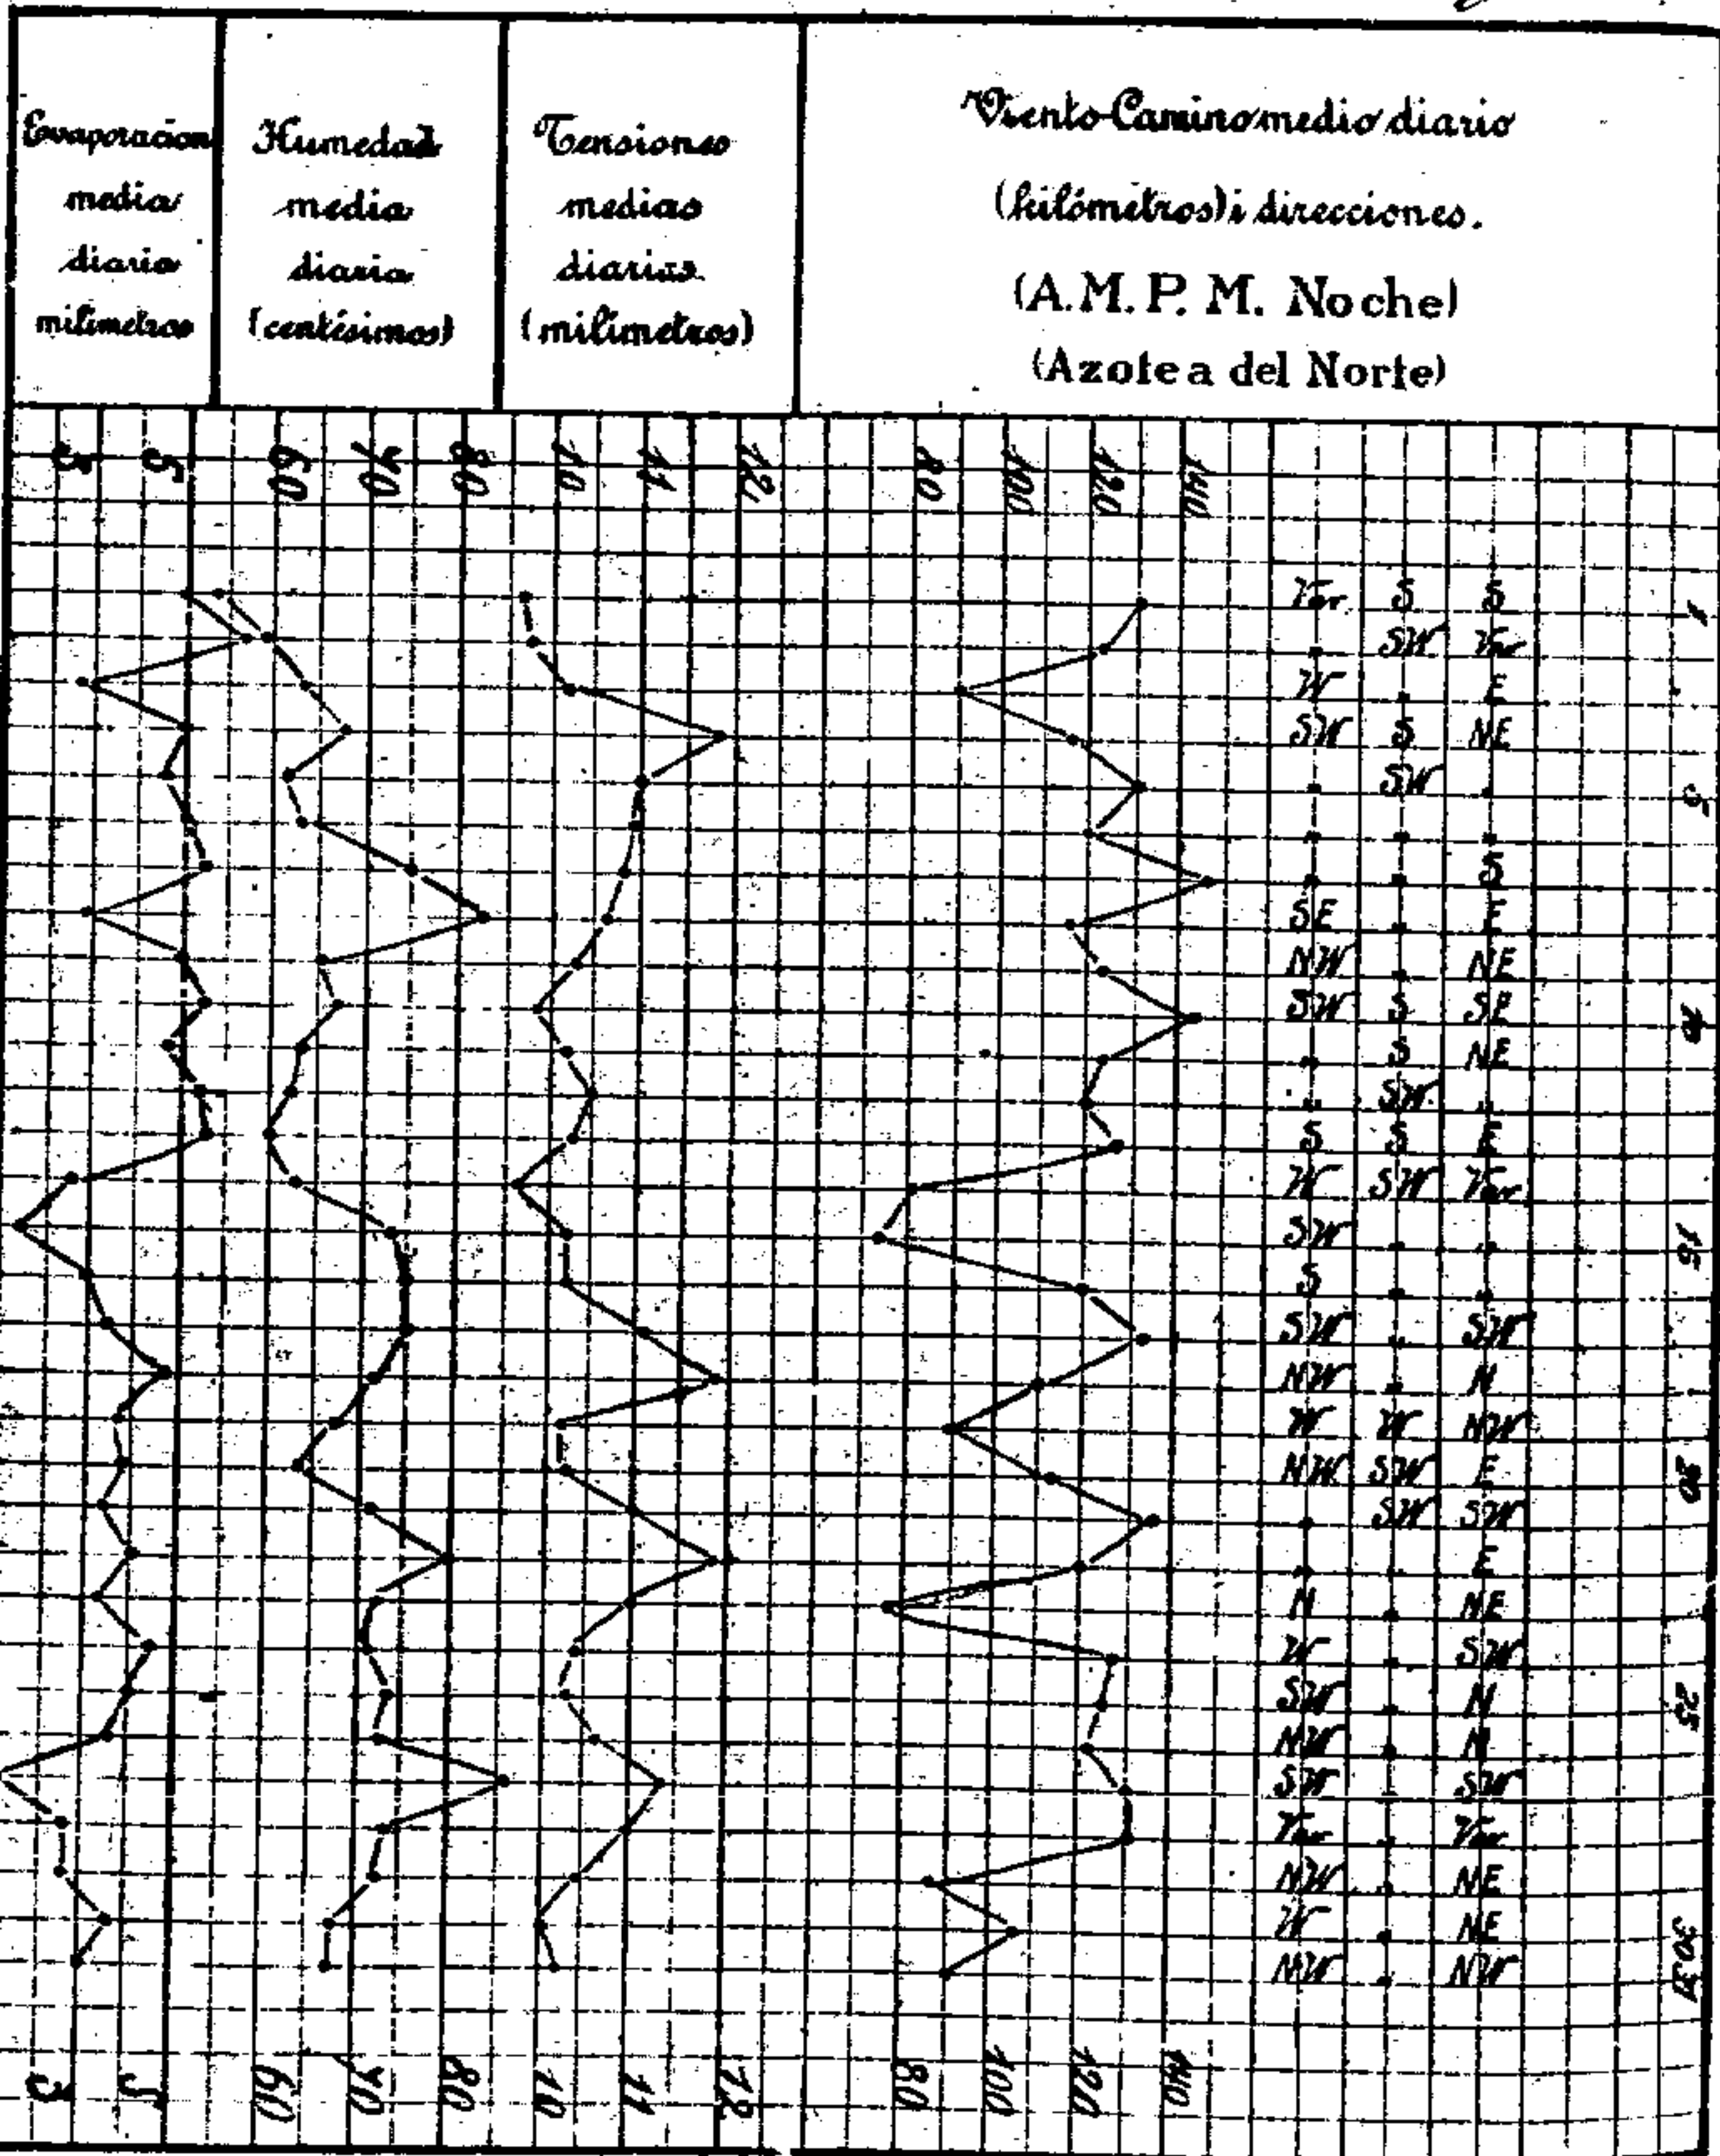 Evaporacion
media
diaria
milimetros
Humedad
media
diaria
(centésimos)
Tensiones
medias
diarias.
(milímetros)
Viento-Camino medio diario
(kilómetros) i direcciones.
(A.M. P. M. Noche)
(Azotea del Norte)
3 5 60 70 80 10 11 12 80 100 120 140
Var S S 1
" SW Var
W " E
SW S NE
" SW " 5
" " "
" " S
SE " E
NW " NE
SW S SE 10
" S NE
" SW "
S S E
W SW Var
SW " " 15
S " "
SW " SW
NW " N
W W NW
NW SW E 20
" SW SW
" " E
N " NE
W " SW
SW " N 25
NW " N
SW " SW
Var " Var
NW " NE
W " NE 30
NW " NW 31
3 5 60 70 80 10 11 12 80 100 120 140